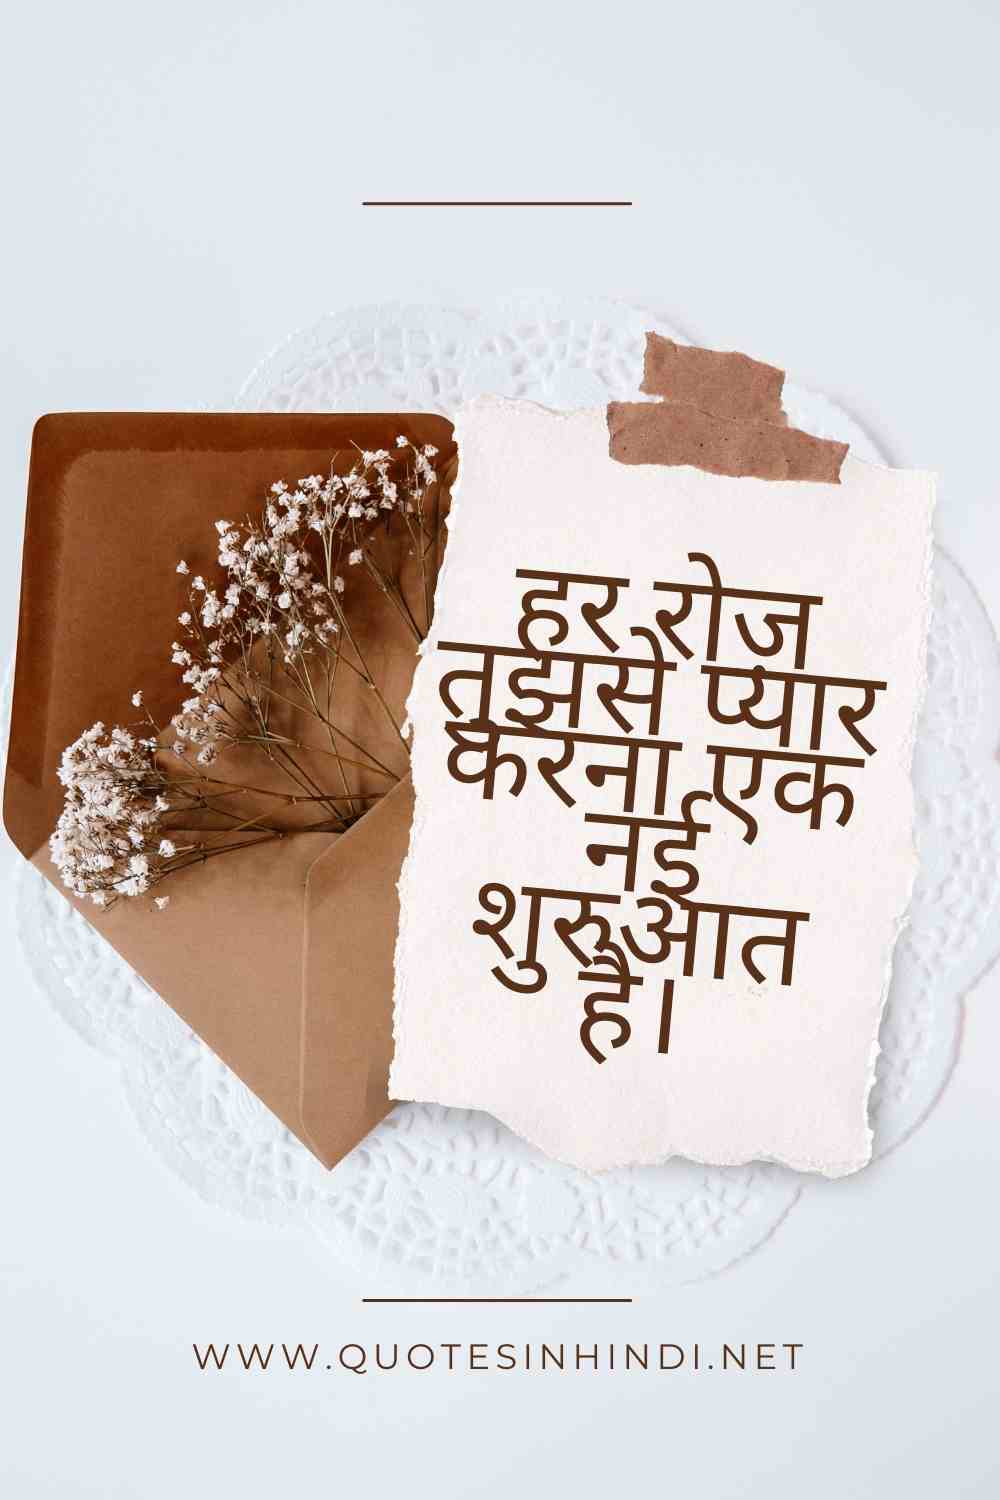 हर रोज
तुझसे प्यार
करना एक
नई
शुरुआत
है।
WWW.QUOTESINHINDI.NET